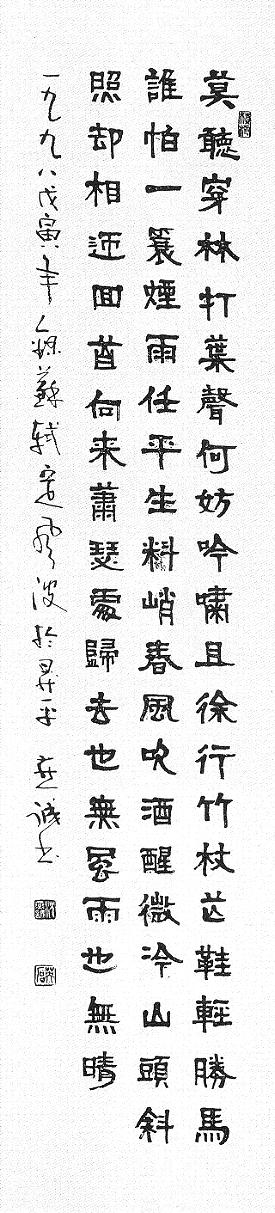 莫聽穿林打葉聲何妨吟嘯且徐行竹杖芒鞋輕勝馬
誰怕一蓑煙雨任平生料峭春風吹酒醒微冷山頭斜
照却相迎回首向来蕭瑟處歸去也無風雨也無晴
一九九八戊寅年蘇軾定風波於昇平 誠书